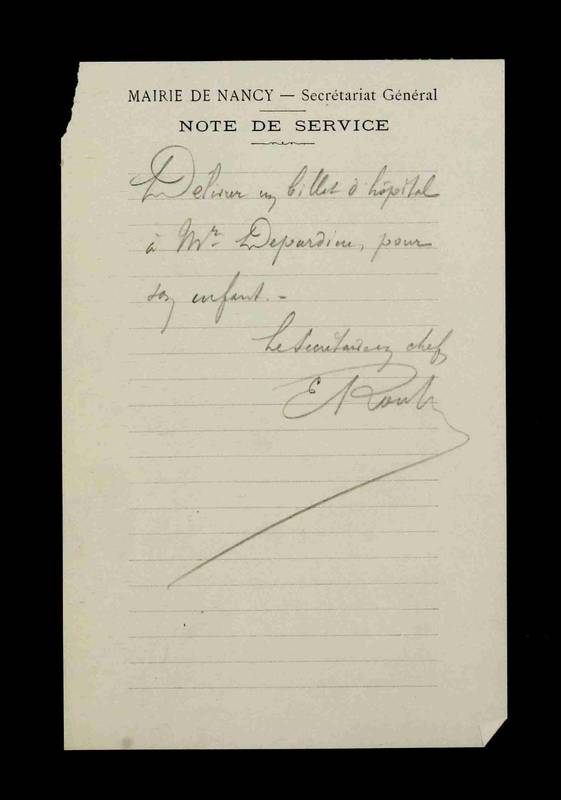 MAIRIE DE NANCY — Secrétariat Général
NOTE DE SERVICE
Délivrer un billet d'hôpital
à Mr Depardieu, pour
son enfant. -
Le Secrétaire en chef,